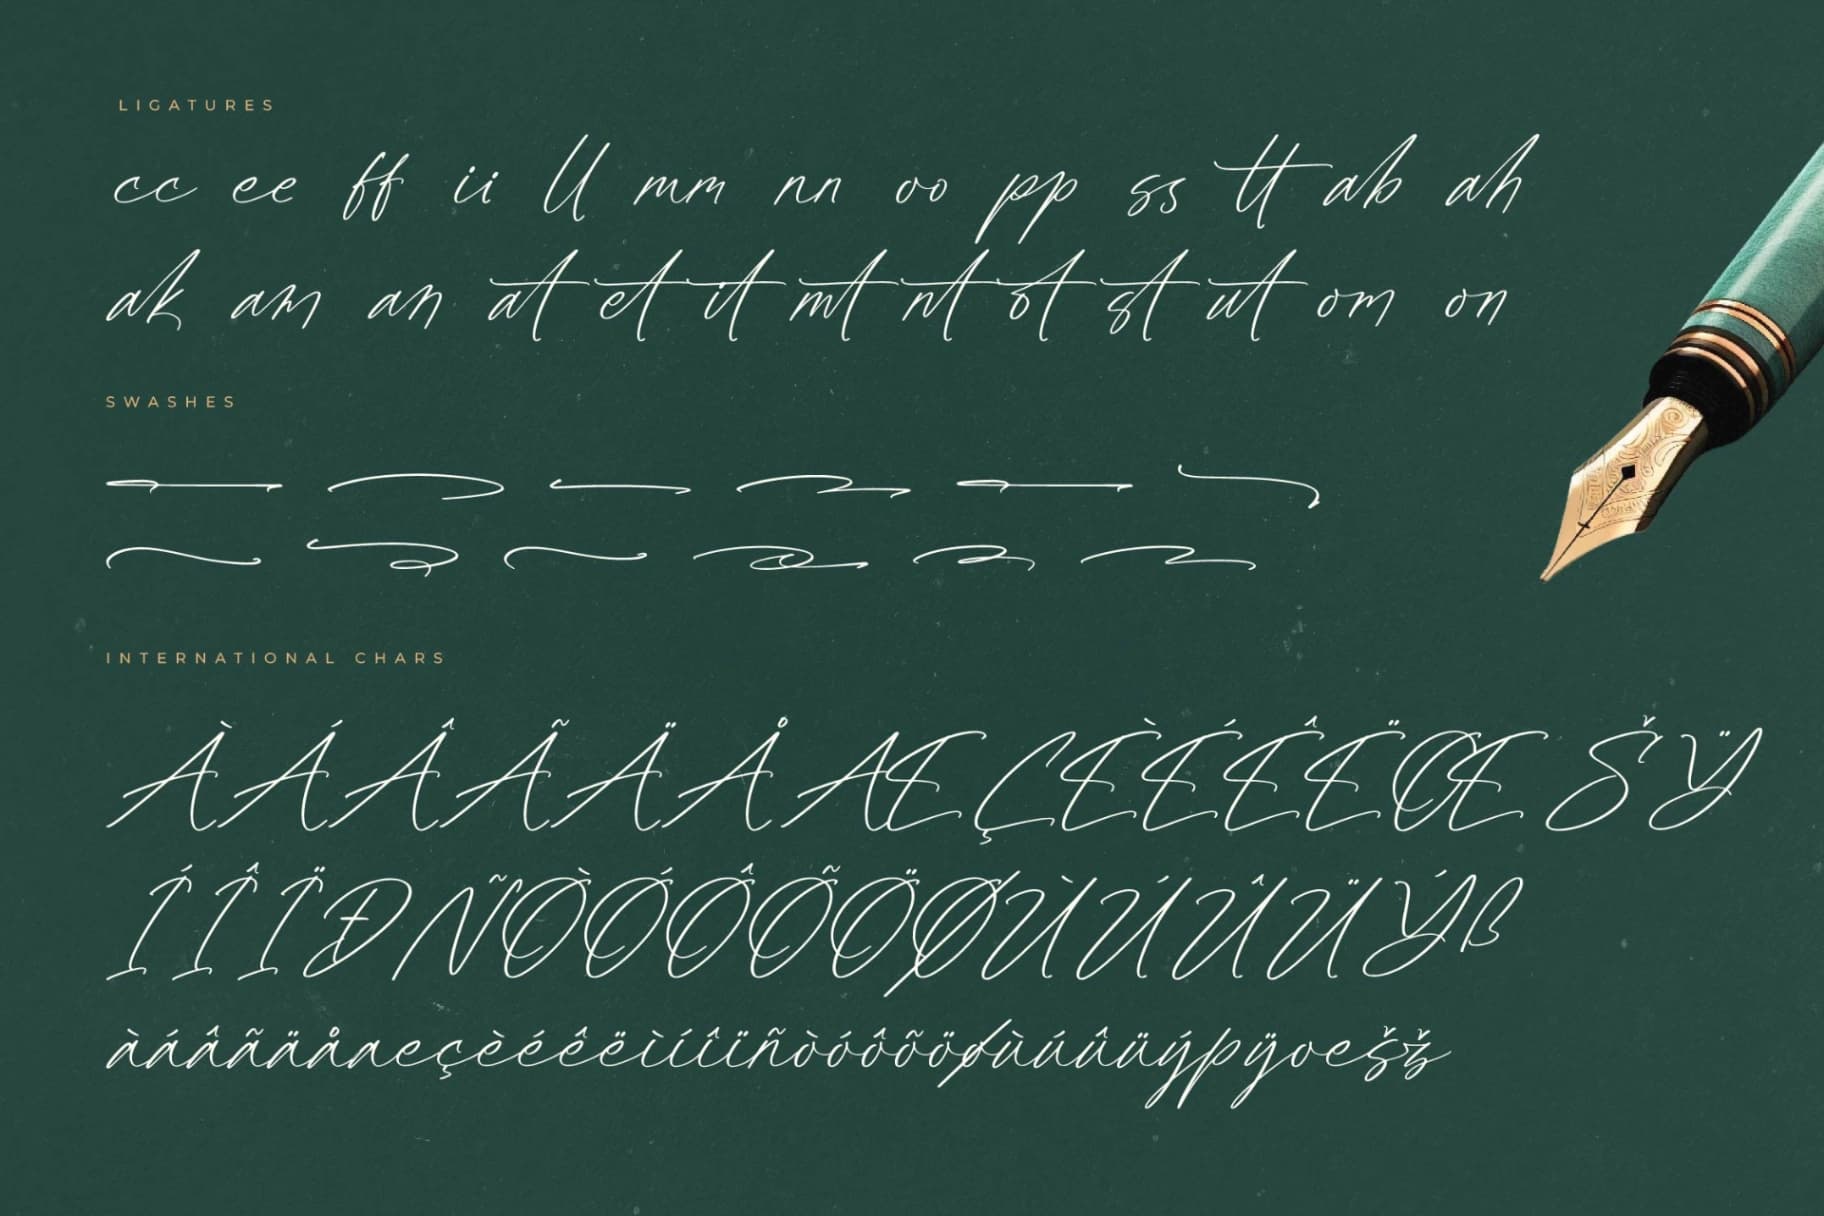 LIGATURES
cc ee ff ii ll mm nn oo pp ss tt ab ah
ak am an at et it mt nt ot st ut om on
SWASHES
INTERNATIONAL CHARS
À Á Â Ã Ä Å Æ Ç È É Ê Ë Œ Š Ÿ
Í Î Ï Ð Ñ Ò Ó Ô Õ Ö Ø Ù Ú Û Ü Ý ß
àáâãäåæçèéêëìíîïñòóôõöøùúûüýþÿœšž